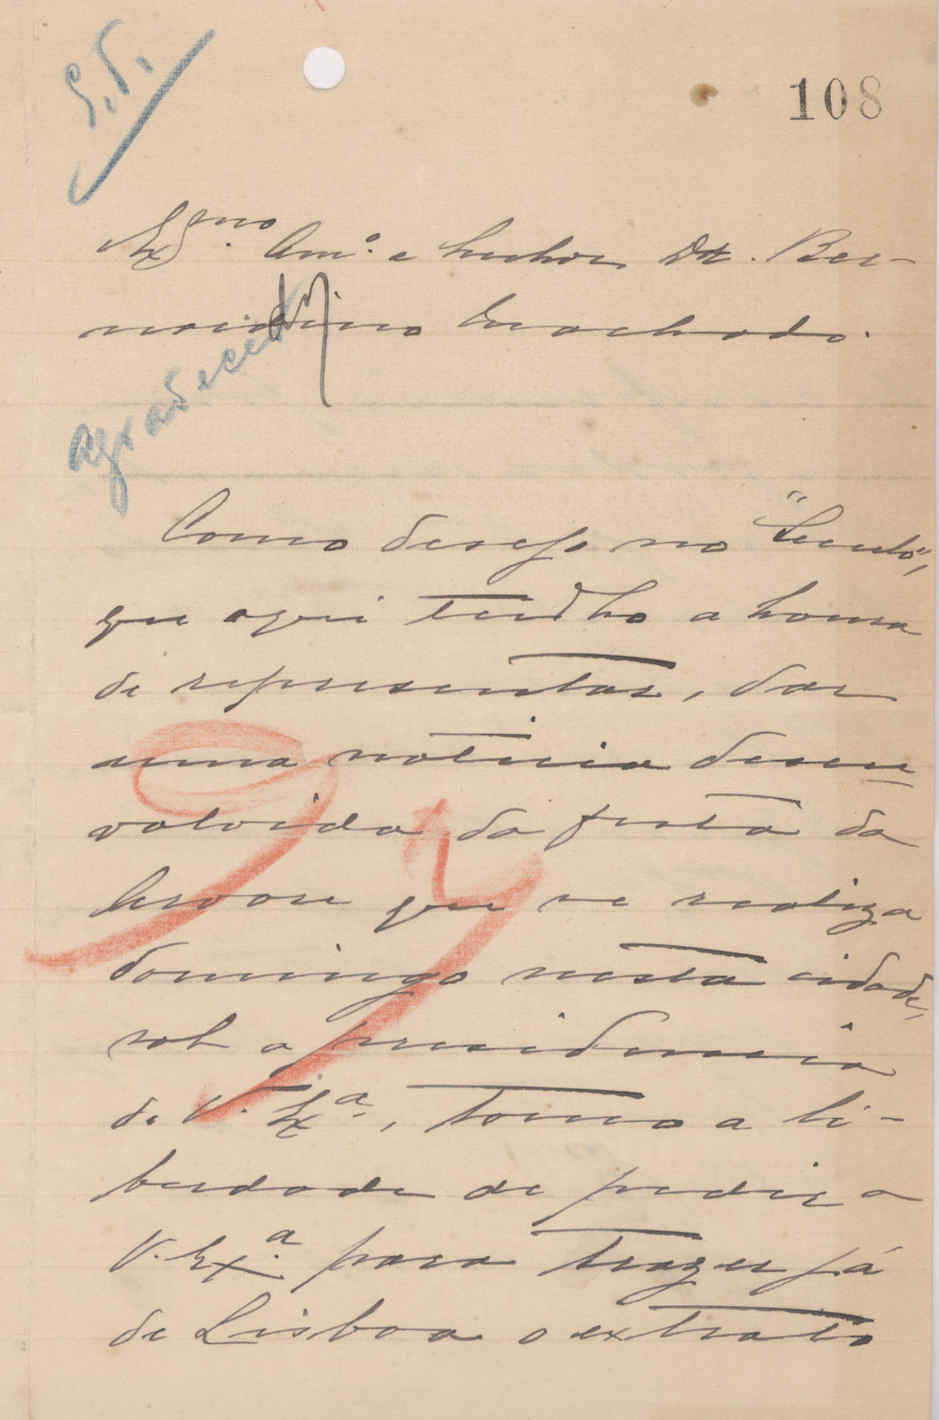 108
Ex.mo Am.o e Senhor Dr. Ber-
nardino Machado.
agradecer
Como desejo no "Seculo",
que aqui tenho a honra
de representar, dar
uma noticia desen
volvida da festa da
Arvore que se realiza
domingo nesta cidade,
sob a presidencia
de V. Ex.a, tomo a li-
berdade de pedir a
V. Ex.a para trazer já
de Lisboa o extrato